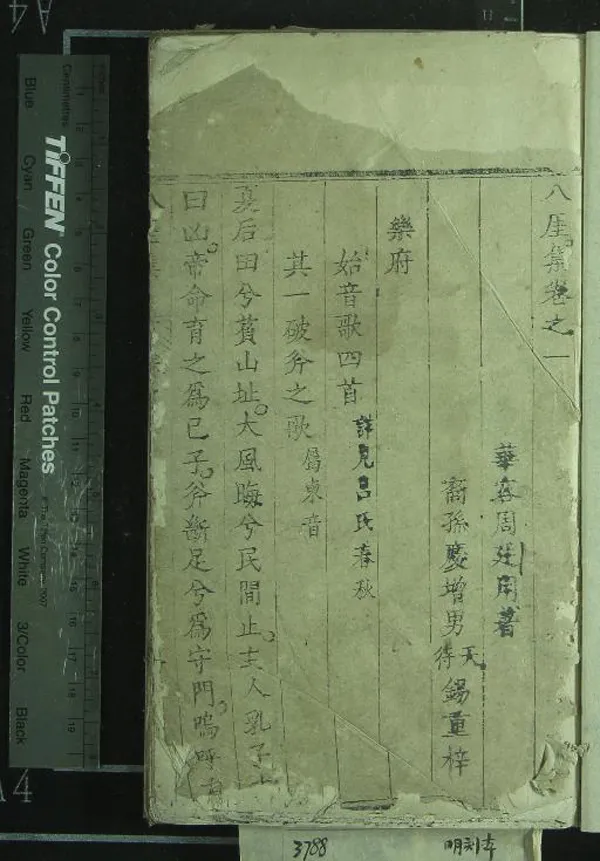 八厓集卷之一
華容周廷用著
裔孫慶增男天
待
錫重梓
樂府
始音歌四首
詳見呂氏春秋
其一破斧之歌
屬東音
夏后田兮萯山址大風晦兮民間止主人乳子
曰凶帝命育之爲己子斧斷足兮爲守門嗚呼
Centimetres
TIFFEN Color Control Patches
© The Tiffen Company, 2007
Blue
Cyan
Green
Yellow
Red
Magenta
White
3/Color
Black
A4
A4
3788
明刻本